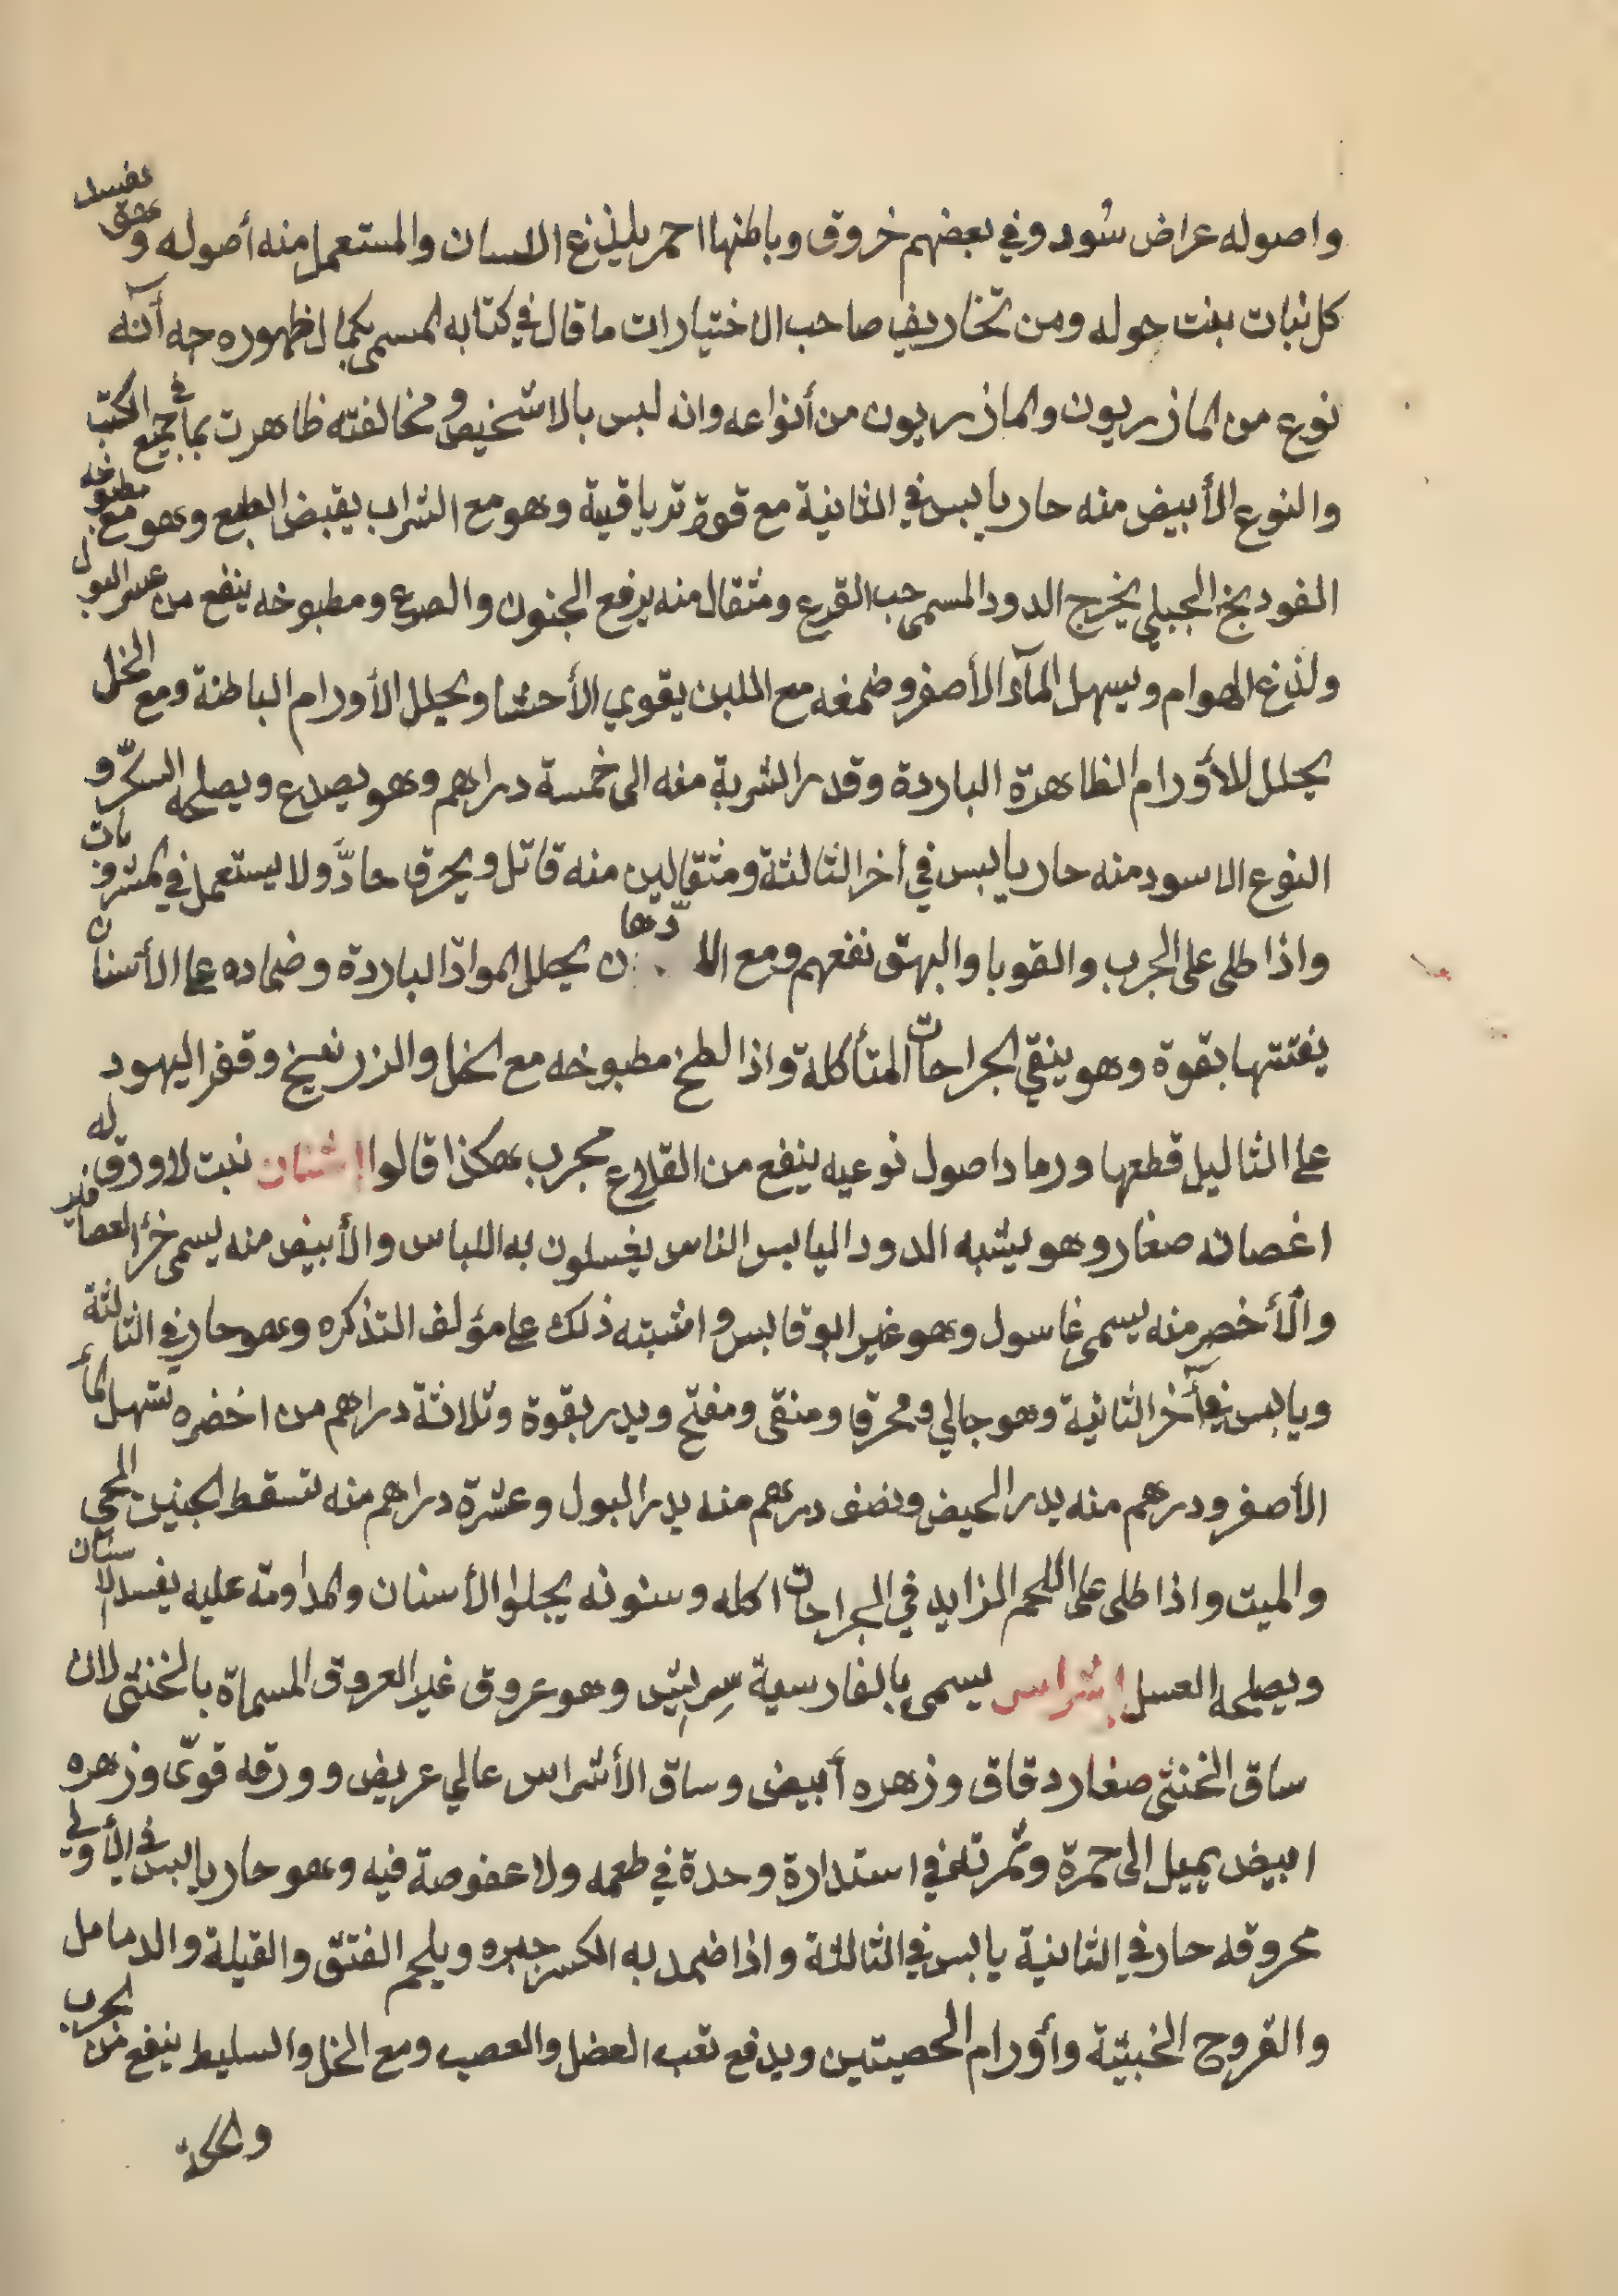 واصوله عراض سُود وفي بعضهم خروق وباطنها احمر يلذغ اللسان والمستعمل منه أصوله و
كل نبات ينبت حوله ومن تخاريف صاحب الاختيارات ما قال في كتابه المسمى بكمال ظهوره جه أنه
نوع من المازريون والمازريون من أنواعه وانه ليس بالاشخيص ومخالفته ظاهرت بما في جميع الكتب
والنوع الأبيض منه حار يابس في الثانية مع قوة ترياقية وهو مع الشراب يقبض الطبع وهو مع مطبوخه
الفودبخ الجبلي يخرج الدود المسمى حب القرع ومثقال منه يرفع الجنون والصرع ومطبوخه ينفع من عسر البول
ولذغ الهوام ويسهل المآء الأصفر وضمغه مع اللبن يقوي الأحشا ويحلل الأورام الباطنة ومع الخل
يحلل للأورام الظاهرة الباردة وقدر الشربة منه الى خمسة دراهم وهو يصدع ويصلحه السكّر و
النوع الاسود منه حار يابس في أخر الثالثة ومثقالين منه قاتل ويحرق حادَّ ولا يستعمل في المشروبات
واذا طلى على الجرب والقوبا والبهق نفعهم ومع الادهان يحلل الموادّ الباردة وضماده على الأسنان
يفتتها بقوة وهو ينقي الجراحات المتأكلة واذا لطخ مطبوخه مع الخل والزرنيخ وقفر اليهود
على الثاليل قطعها ورماد اصول نوعيه ينفع من القلاع مجرب هكذا قالوا إشنان نبت لا ورق له
اغصانه صغار وهو يشبه الدود اليابس الناس يغسلون به اللباس والأبيض منه يسمى خرؤ العصافير
والأخضر منه يسمى غاسول وهو غير ابوقابس واشبته ذلك على مؤلف التذكره وهو حار في الثالثة
ويابس في آخر الثانية وهو جالي ومحرق ومنقى ومفتح ويدر بقوة وثلاثة دراهم من اخضره تسهل الماء
الأصفر ودرهم منه يدر الحيض ونصف درهم منه يدر البول وعشرة دراهم منه تسقط الجنين الحي
والميت واذا طلى على اللحم الزايد في الجراحات اكله وسنونه يجلوا الأسنان والمداومة عليه يفسد الاسنان
ويصلحه العسل إشراس يسمى بالفارسية سِرِيش وهو عروق غير العروق المسماة بالخنثى لان
ساق الخنثى صغار دقاق وزهره أبيض وساق الأشراس عالي عريض وورقه قوّى وزهره
ابيض يميل الى حمرة وثمرته في استدارة وحدة في طعمه ولا عفوصة فيه وهو حار يابس في الأولى
محروقه حار في الثانية يابس في الثالثة واذا ضمد به الكسر جبره ويلحم الفتق والقيلة والدمامل
والقروح الخبيثة وأورام الخصيتين ويدفع تعب العضل والعصب ومع الخل والسليط ينفع من الجرب
والحكة